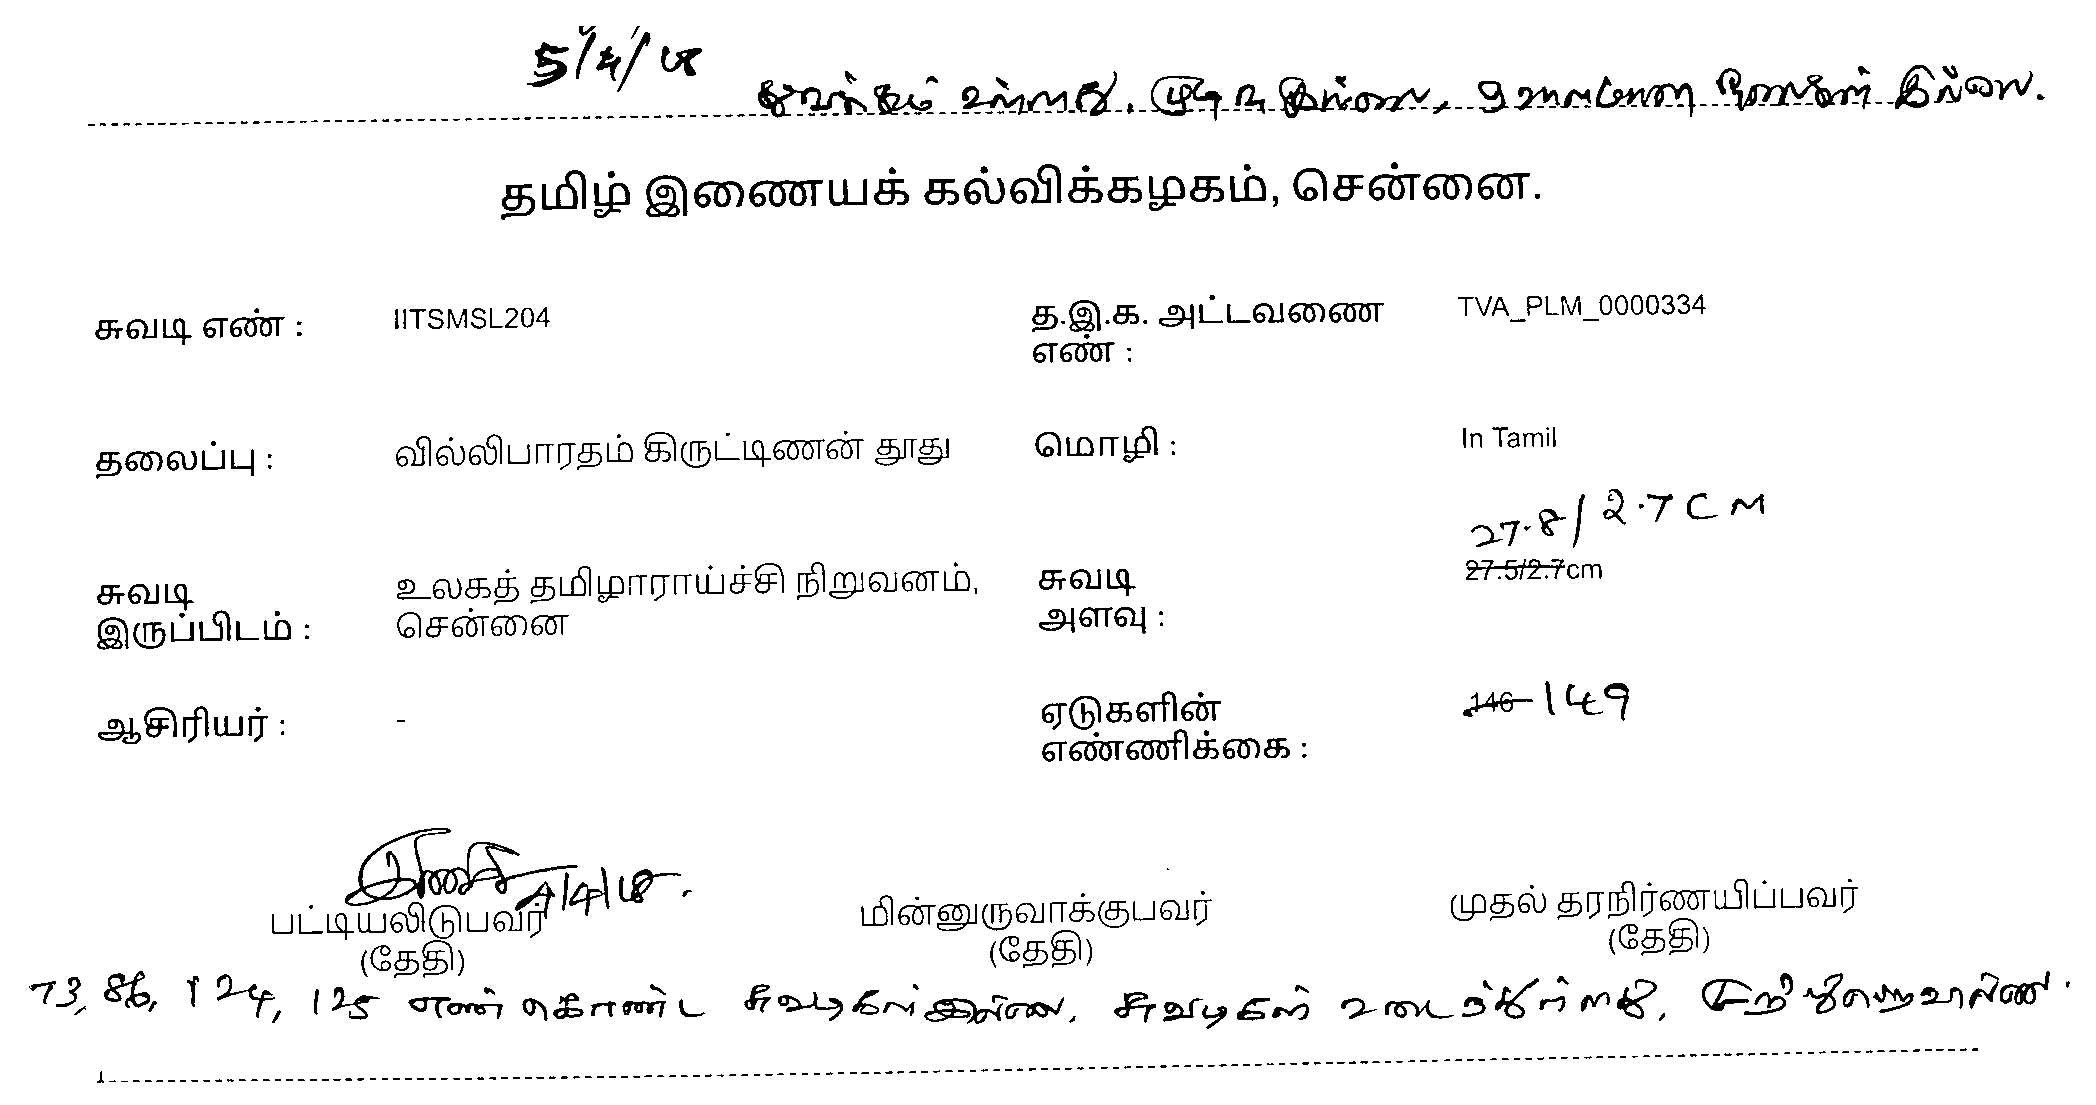 5/4/18
துவக்கம் உள்ளது. முடிவு இல்லை, இல்லை.
தமிழ் இணையக் கல்விக்கழகம், சென்னை.
சுவடி எண் : IITSMSL204 த.இ.க. அட்டவணை எண் : TVA_PLM_0000334
தலைப்பு : வில்லிபாரதம் கிருட்டிணன் தூது மொழி : In Tamil
27.8/2.7CM
சுவடி இருப்பிடம் : உலகத் தமிழாராய்ச்சி நிறுவனம், சென்னை சுவடி அளவு : 27.5/2.7cm
ஆசிரியர் : - ஏடுகளின் எண்ணிக்கை : 146 149
4/4/18.
பட்டியலிடுபவர் (தேதி) மின்னுருவாக்குபவர் (தேதி) முதல் தரநிர்ணயிப்பவர் (தேதி)
73, 86, 124, 125 எண் கொண்ட சுவடிகள் இல்லை. சுவடிகள் உடைந்துள்ளது,